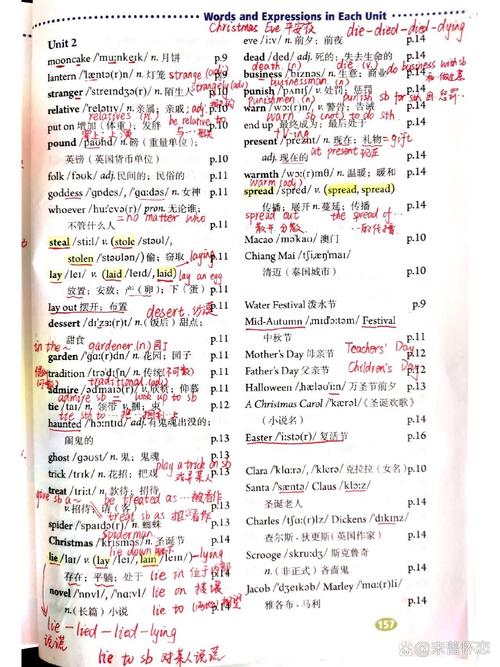 Words and Expressions in Each Unit
Christmas Eve 平安夜
Unit 2
mooncake /ˈmuːnkeɪk/ n. 月饼 p.9
lantern /ˈlæntə(r)n/ n. 灯笼 p.9
strange (adj)
stranger /ˈstreɪndʒə(r)/ n. 陌生人 p.10
relative /ˈrelətɪv/ n. 亲属；亲戚 p.10
relatives (pl.) be relative to
put on 增加（体重）；发胖 p.10
pound /paʊnd/ n. 磅（重量单位）；
英镑（英国货币单位） p.10
folk /fəʊk/ adj. 民间的；民俗的 p.11
goddess /ˈɡɒdes/, /ˈɡɑːdəs/ n. 女神 p.11
whoever /huːˈevə(r)/ pron. 无论谁；
= no matter who
不管什么人 p.11
steal /stiːl/ v. (stole /stəʊl/,
stolen /ˈstəʊlən/) 偷；窃取 p.11
laying
lay /leɪ/ v. (laid /leɪd/, laid)
lay an egg
放置；安放；产（卵）；下（蛋） p.11
lay out 摆开；布置 p.11
desert 沙漠
dessert /dɪˈzɜː(r)t/ n.（饭后）甜点；
甜食 p.11
in the ~ gardener (n.) 园丁
garden /ˈɡɑː(r)dn/ n. 花园；园子 p.11
tradition /trəˈdɪʃn/ n. 传统 p.12
traditional (adj)
admire /ədˈmaɪə(r)/ v. 欣赏；仰慕 p.11
admire sb = look up to sb
tie /taɪ/ n. 领带 v. 捆；束 p.12
tie sth to
haunted /ˈhɔːntɪd/ adj. 有鬼魂出没的；
闹鬼的 p.13
ghost /ɡəʊst/ n. 鬼；鬼魂 p.13
play a trick on sb
trick /trɪk/ n. 花招；把戏 p.13
treat /triːt/ n. 款待；招待
give sb a ~ be treated as … 被看作
v. 招待；请（客） p.13
treat sb as 把…看作
spider /ˈspaɪdə(r)/ n. 蜘蛛 p.13
Spiderman
Christmas /ˈkrɪsməs/ n. 圣诞节 p.14
lie down
lie /laɪ/ v. (lay /leɪ/, lain /leɪn/) -lying
存在；平躺；处于 p.14
lie in 位于内部
novel /ˈnɒvl/, /ˈnɑːvl/ lie on 接壤
n.（长篇）小说 p.14
lie to
lie-lied-lied-lying
说谎
lie to sb 对某人说谎
eve /iːv/ n. 前夕；前夜 p.14
die-died-died-dying
dead /ded/ adj. 死的；失去生命的 p.14
death (n) die (v) do business with sb
business /ˈbɪznəs/ n. 生意；商业 p.14
businessman (n)
punish /ˈpʌnɪʃ/ v. 处罚；惩罚 p.14
punishment (n) punish sb for sth 因…惩罚…
warn /wɔː(r)n/ v. 警告；告诫 p.14
warn sb (not) to do sth
end up 最终成为；最后处于 p.14
+ V-ing
present /ˈpreznt/ n. 现在；礼物 = gift
adj. 现在的 at present 现在 p.14
warmth /wɔː(r)mθ/ n. 温暖；暖和 p.14
warm (adj)
spread /spred/ v. (spread, spread)
传播；展开 n. 蔓延；传播 p.14
spread out the spread of …
Macao /məˈkaʊ/ 澳门 p.10
Chiang Mai /tʃiˌæŋˈmaɪ/
清迈（泰国城市） p.10
Water Festival 泼水节 p.9
Mid-Autumn /ˌmɪdˈɔːtəm/ Festival
中秋节 p.11
Mother's Day 母亲节 p.12
Teachers' Day
Father's Day 父亲节 p.12
Children's Day
Halloween /ˌhæləʊˈiːn/ 万圣节前夕 p.13
A Christmas Carol /ˈkærəl/《圣诞欢歌》
（小说名） p.14
Easter /ˈiːstə(r)/ 复活节 p.16
Clara /ˈklɑːrə/, /ˈklerə/ 克拉拉（女名） p.10
Santa /ˈsæntə/ Claus /klɔːz/
圣诞老人 p.14
Charles /tʃɑː(r)lz/ Dickens /ˈdɪkɪnz/
查尔斯·狄更斯（英国作家） p.14
Scrooge /skruːdʒ/ 斯克鲁奇
n.（非正式）吝啬鬼 p.14
Jacob /ˈdʒeɪkəb/ Marley /ˈmɑː(r)li/
雅各布·马利 p.14
157